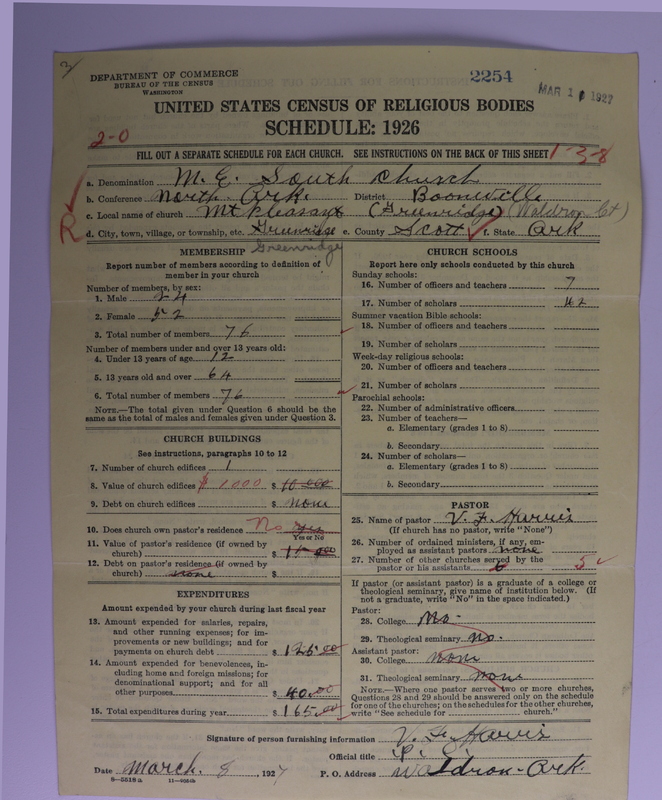 DEPARTMENT OF COMMERCE
BUREAU OF THE CENSUS
WASHINGTON
2254
MAR 1 1927
UNITED STATES CENSUS OF RELIGIOUS BODIES
SCHEDULE: 1926
2-0
FILL OUT A SEPARATE SCHEDULE FOR EACH CHURCH. SEE INSTRUCTIONS ON THE BACK OF THIS SHEET
1-3-8
a. Denomination M. E. South Church
b. Conference North Ark. District Booneville
c. Local name of church Mt Pleasant (Greenridge) (Waldron Ct)
R
d. City, town, village, or township, etc. Greenridge e. County Scott f. State Ark
Greenridge
MEMBERSHIP
Report number of members according to definition of
member in your church
Number of members, by sex:
1. Male 24
2. Female 52
3. Total number of members 76
Number of members under and over 13 years old:
4. Under 13 years of age 12
5. 13 years old and over 64
6. Total number of members 76
NOTE.—The total given under Question 6 should be the
same as the total of males and females given under Question 3.
CHURCH BUILDINGS
See instructions, paragraphs 10 to 12
7. Number of church edifices 1
8. Value of church edifices $1000 $ 10.00
9. Debt on church edifices $ none
10. Does church own pastor's residence No yes
Yes or No
11. Value of pastor's residence (if owned by
church) $
12. Debt on pastor's residence (if owned by
church) none $
EXPENDITURES
Amount expended by your church during last fiscal year
13. Amount expended for salaries, repairs,
and other running expenses; for im-
provements or new buildings; and for
payments on church debt $ 125.00
14. Amount expended for benevolences, in-
cluding home and foreign missions; for
denominational support; and for all
other purposes $ 40.00
15. Total expenditures during year $ 165.00
CHURCH SCHOOLS
Report here only schools conducted by this church
Sunday schools:
16. Number of officers and teachers 7
17. Number of scholars 42
Summer vacation Bible schools:
18. Number of officers and teachers
19. Number of scholars
Week-day religious schools:
20. Number of officers and teachers
21. Number of scholars
Parochial schools:
22. Number of administrative officers
23. Number of teachers—
a. Elementary (grades 1 to 8)
b. Secondary
24. Number of scholars—
a. Elementary (grades 1 to 8)
b. Secondary
PASTOR
25. Name of pastor V. F. Harris
(If church has no pastor, write "None")
26. Number of ordained ministers, if any, em-
ployed as assistant pastors none
27. Number of other churches served by the
pastor or his assistants 6 5
If pastor (or assistant pastor) is a graduate of a college or
theological seminary, give name of institution below. (If
not a graduate, write "No" in the space indicated.)
Pastor:
28. College No.
29. Theological seminary no.
Assistant pastor:
30. College none
31. Theological seminary none
NOTE.—Where one pastor serves two or more churches,
Questions 28 and 29 should be answered only on the schedule
for one of the churches; on the schedules for the other churches,
write "See schedule for church."
Signature of person furnishing information V. F. Harris
Official title P. C.
Date March. 8, 1927 P. O. Address Waldron - Ark.